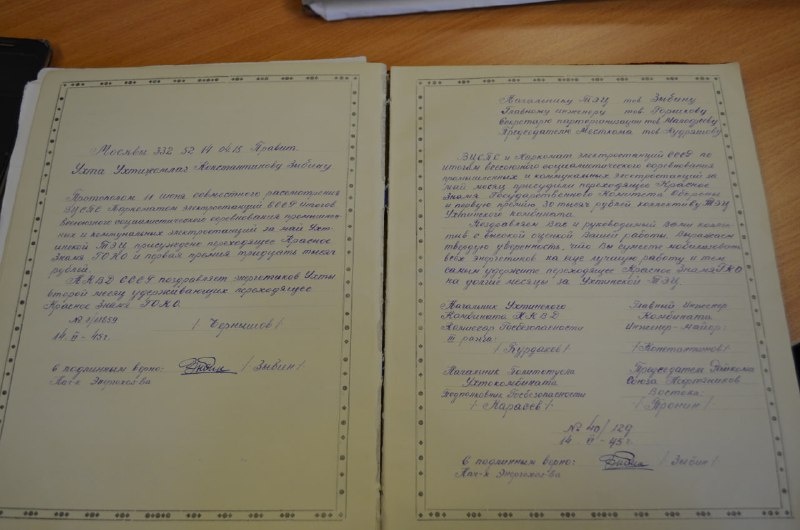 Москвы 332 52 14 0415 Правит.
Ухта Ухтижемлаг Константинову Зыбину
Протоколом 11 июня совместного рассмотрения
ВЦСПС Наркоматом электростанций СССР итогов
Всесоюзного социалистического соревнования промышлен-
ных и коммунальных электростанций за май Ухт-
инской ТЭЦ присуждено переходящее Красное
Знамя ГОКО и первая премия тридцать тысяч
рублей.
НКВД СССР поздравляет энергетиков Ухты
второй месяц удерживающих переходящее
Красное Знамя ГОКО.
/ Чернышов /
14. VI - 45 г.
С подлинным верно: / Зыбин /
Нач-к Энергохоз'ва
Начальнику ТЭЦ тов. Зыбину
Главному инженеру тов.
Секретарю парторганизации тов.
Председателю Месткома тов. Кудряшову
ВЦСПС и Наркомат электростанций СССР по
итогам всесоюзного социалистического соревнования
промышленных и коммунальных электростанций за
май месяц присудили переходящее Красное
Знамя Государственного Комитета Обороны
и первую премию 30 тысяч рублей коллективу ТЭЦ
Ухтинского комбината.
Поздравляем Вас и руководимый Вами коллек-
тив с высокой оценкой Вашей работы. Выражаем
твердую уверенность, что Вы сумеете мобилизовать
всех энергетиков на еще лучшую работу и тем
самым удержите переходящее Красное Знамя ГКО
на долгие месяцы за Ухтинской ТЭЦ.
Начальник Ухтинского Главный Инженер
Комбината НКВД Комбината
Комиссар Госбезопасности Инженер-майор:
III ранга:
/ Бурдаков / / Константинов /
Начальник Политотдела Председатель
Ухткомбината Союза Нефтяников
Подполковник Госбезопасности Востока:
/ Карасев / / Пронин /
№ 40/129
14. VI - 45 г.
С подлинным верно: / Зыбин /
Нач-к Энергохоз'ва